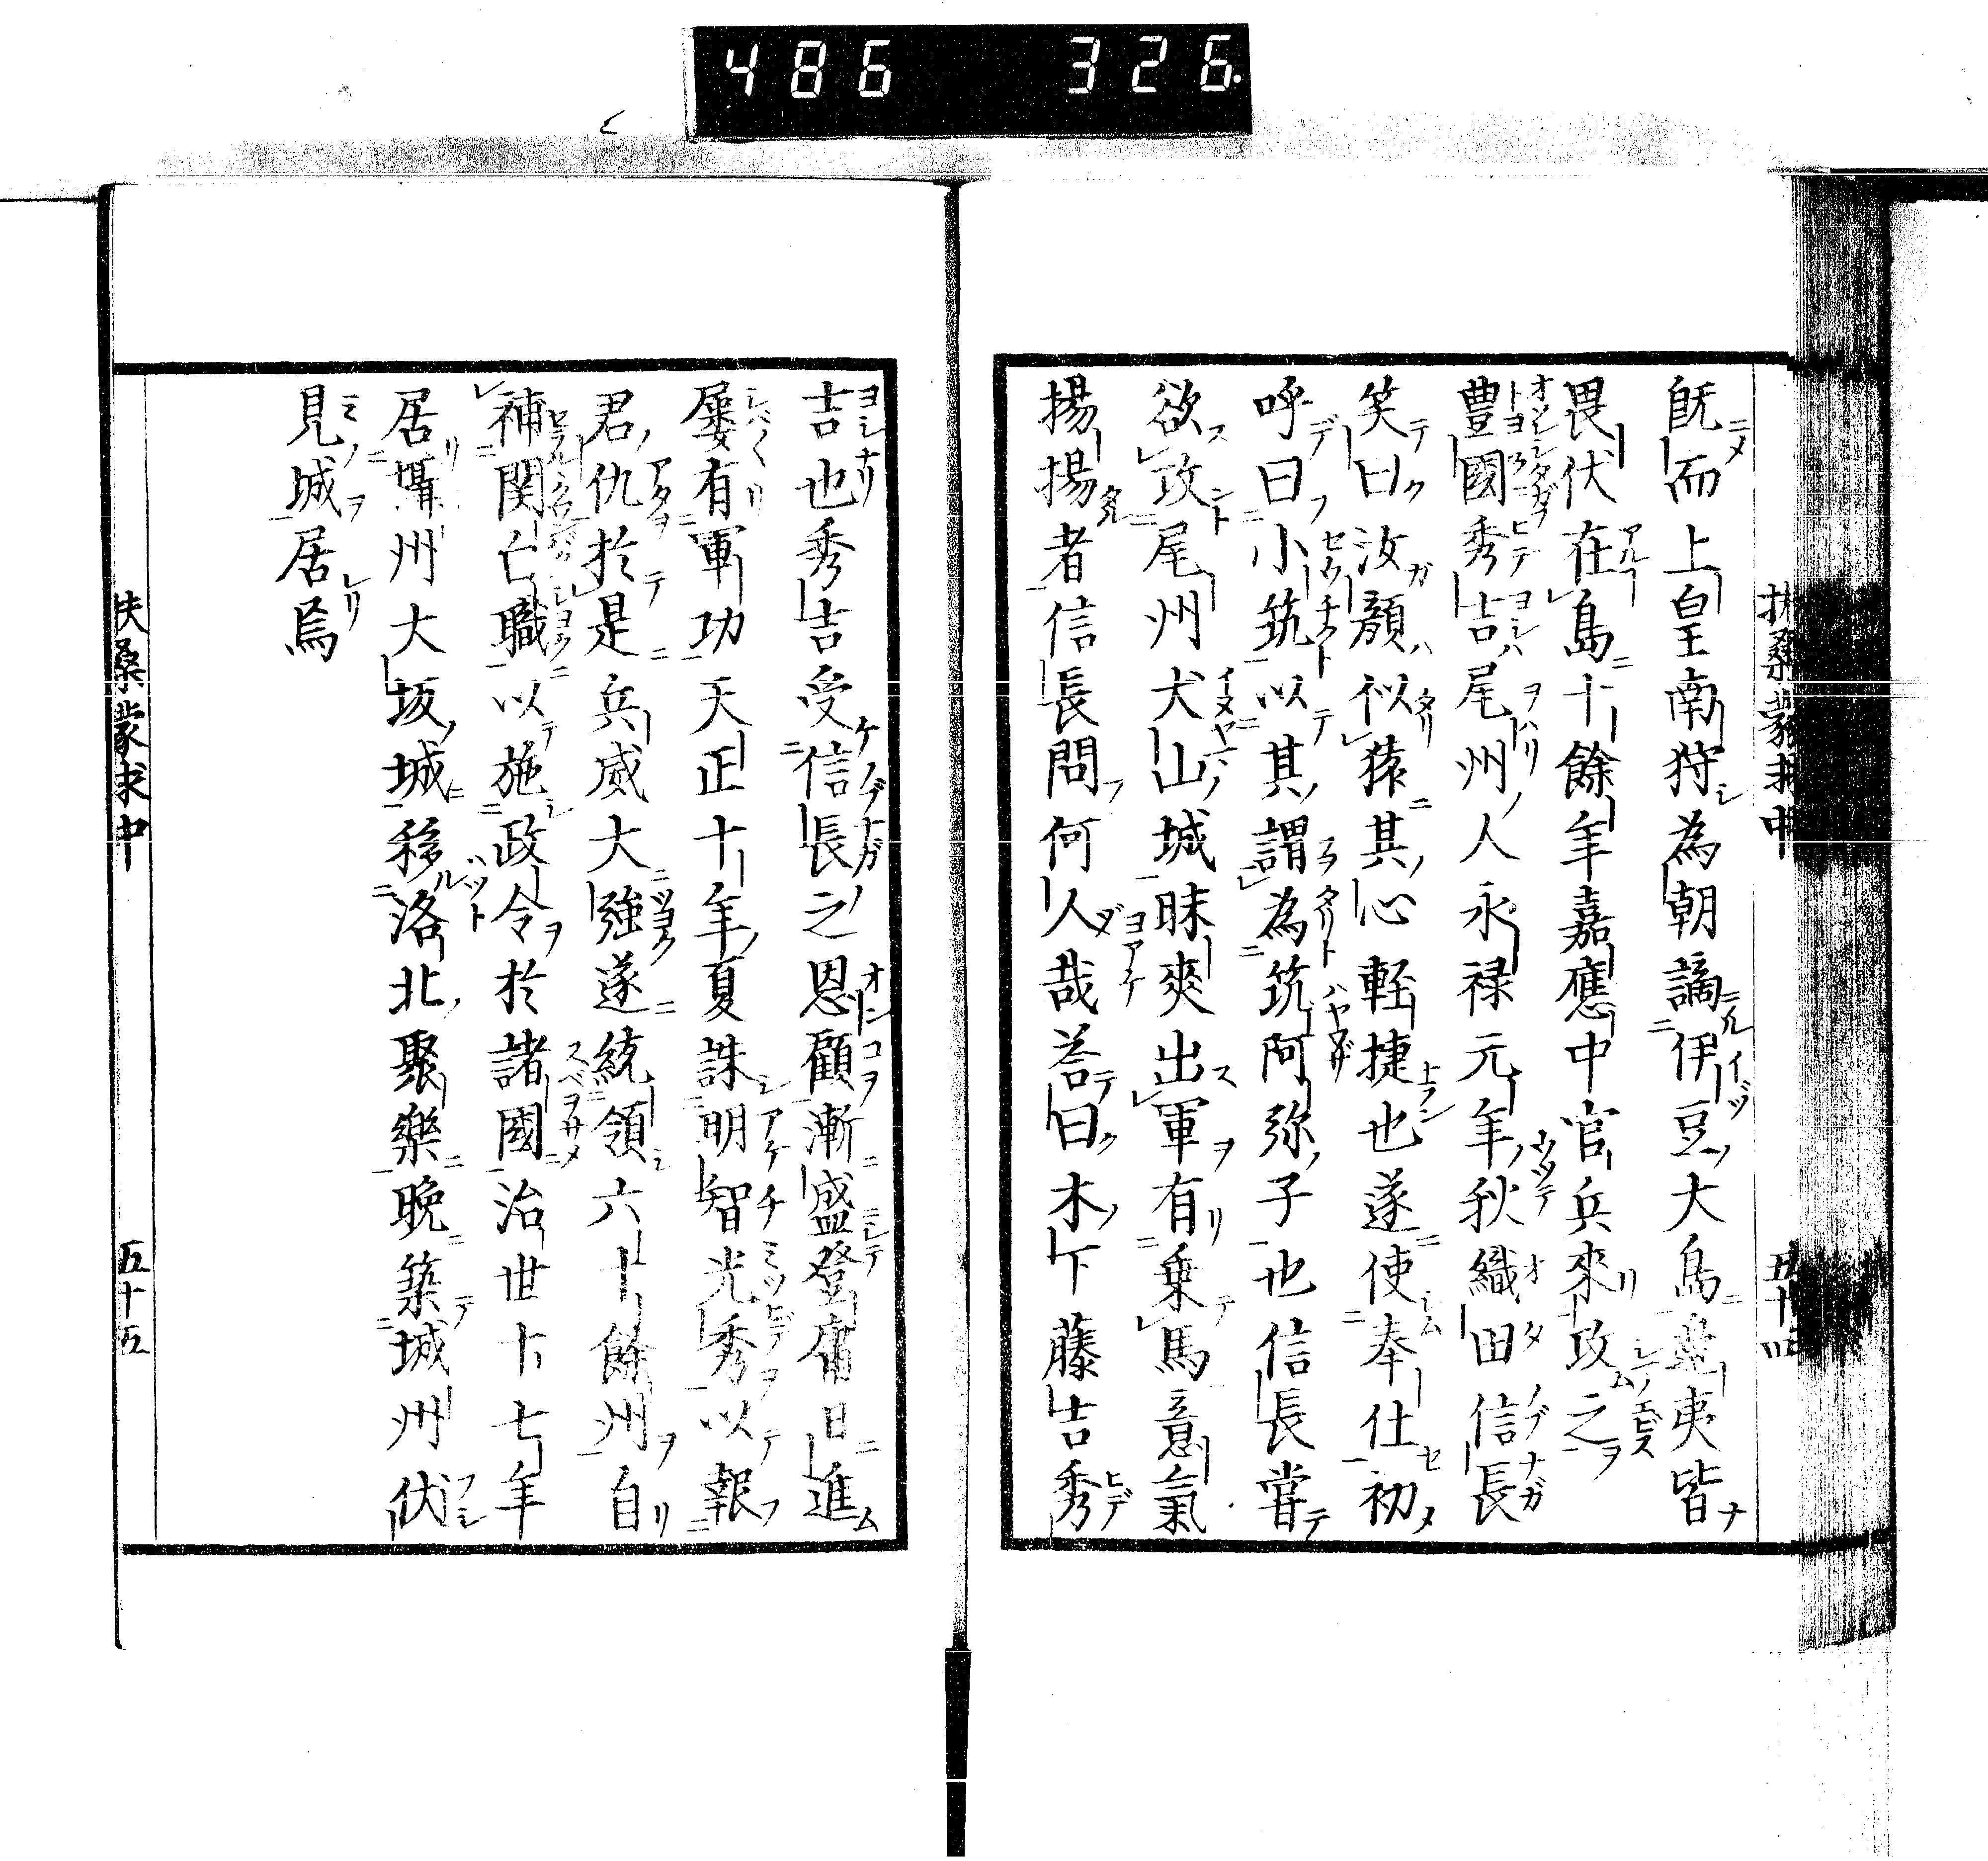 486 326
扶桑蒙求中 五十四
既而上皇南狩為朝謫伊豆大島蠻夷皆
畏伏在島十餘年嘉應中官兵來攻之
豊國秀吉尾州人永禄元年秋織田信長
笑曰汝顏似猿其心軽捷也遂使奉仕初
呼曰小筑以其謂為筑阿弥子也信長嘗
欲攻尾州犬山城昧爽出軍有乗馬意氣
揚揚者信長問何人哉荅曰木下藤吉秀
吉也秀吉受信長之恩顧漸盛登庸日進
屡有軍功天正十年夏誅明智光秀以報
君仇於是兵威大強遂統領六十餘州自
補関白職以施政令於諸國治世十七年
居攝州大坂城移洛北聚樂晩築城州伏
見城居焉
扶桑蒙求中 五十五